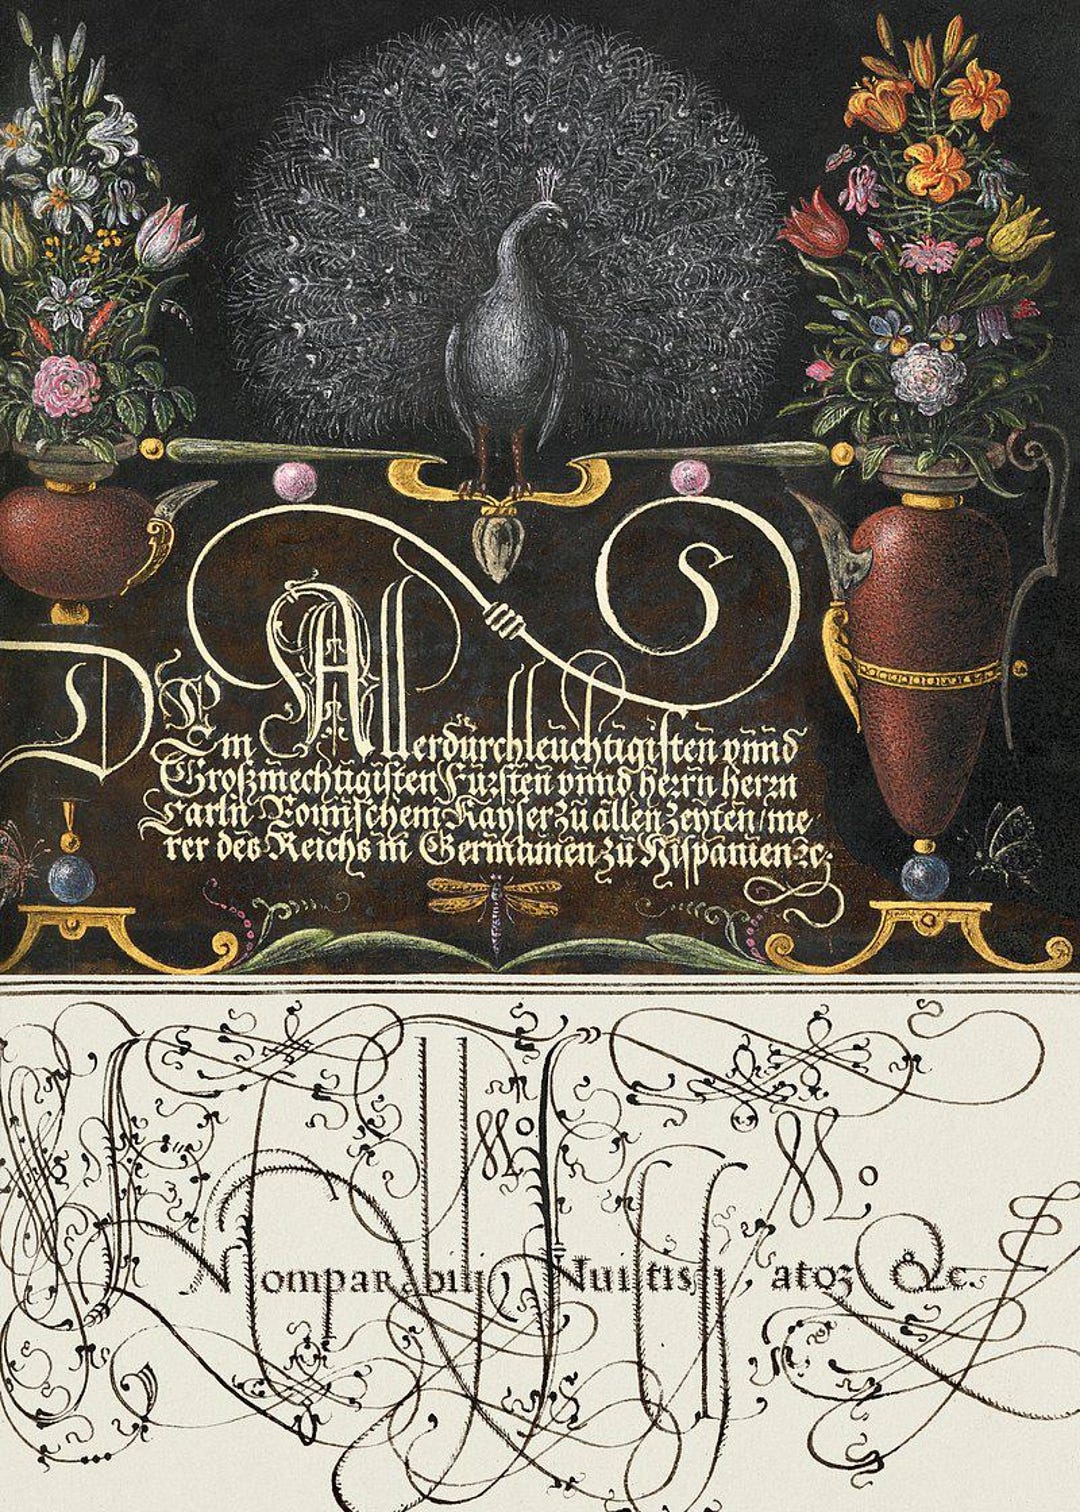 S
Dem Allerdurchleuchtigisten vnnd
Großmechtigisten Fürsten vnnd herrn herrn
Carln Römischem Kayser zu allen Zeyten / me
rer des Reichs in Germanien zu Hispanien ꝛc.
M.o M.o
atoz &c.